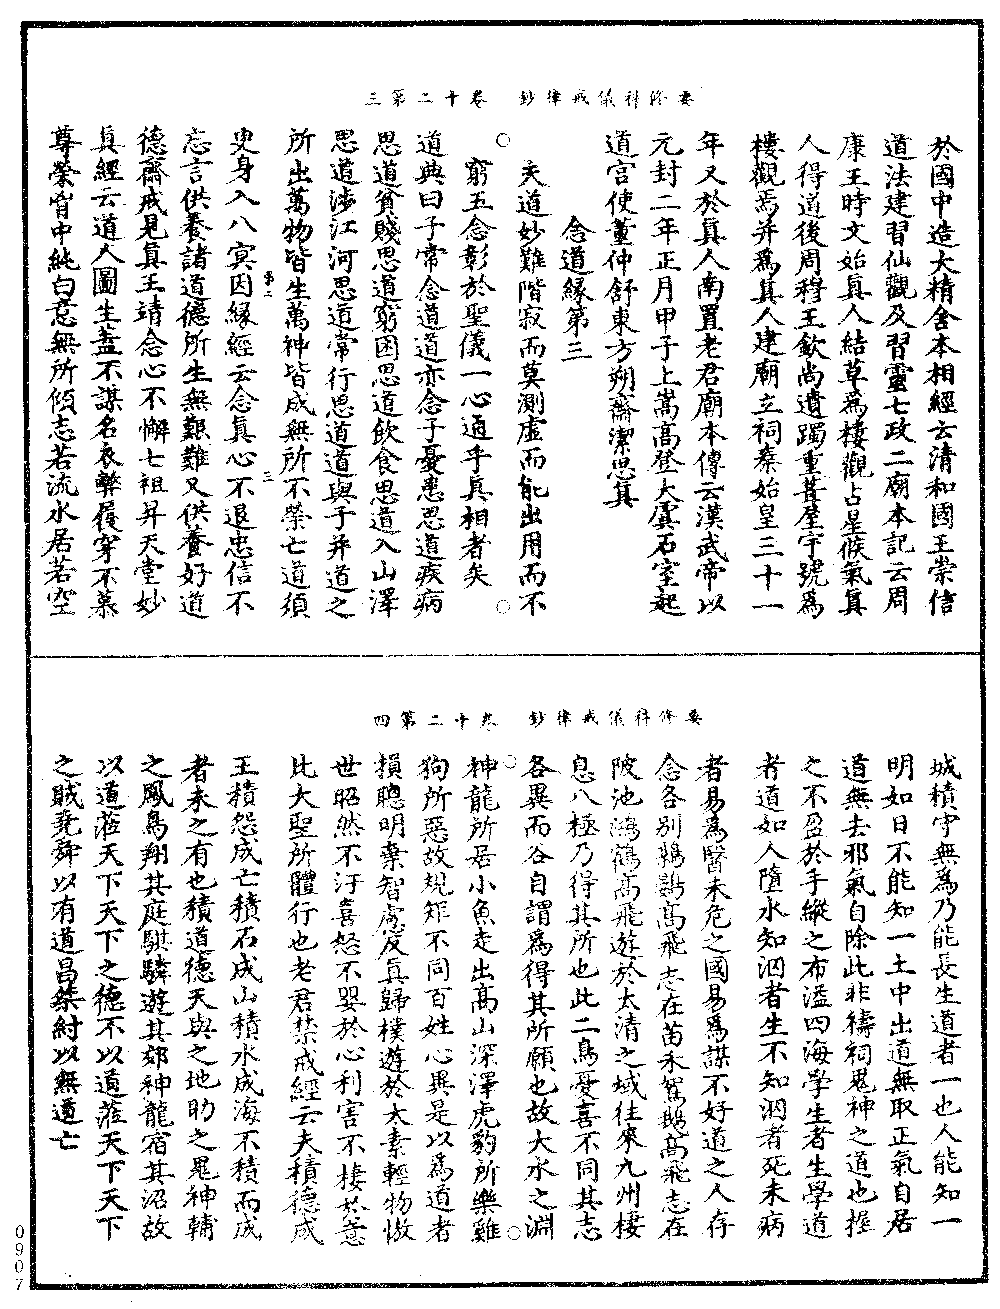 要修科儀戒律鈔　卷十二第三
於國中造大精舍本相經云清和國王崇信
道法建習仙觀及習靈七政二廟本記云周
康王時文始真人結草為樓觀占星候氣真
人得道後周穆王欽尚遺躅重葺屋宇號為
樓觀焉并為真人建廟立祠秦始皇三十一
年又於真人南置老君廟本傳云漢武帝以
元封二年正月甲子上嵩高登大虞石室起
道宮使董仲舒東方朔齋潔思真
念道緣第三
夫道妙難階寂而莫測虛而能出用而不
窮五念彰於聖儀一心通乎真相者矣
道典曰子常念道道亦念子憂患思道疾病
思道貧賤思道窮困思道飲食思道入山澤
思道涉江河思道常行思道道與子并道之
所出萬物皆生萬神皆成無所不榮亡道須
第二　三
臾身入八冥因緣經云念真心不退忠信不
忘言供養諸道德所生無艱難又供養好道
德齋戒見真王靖念心不懈七祖昇天堂妙
真經云道人圖生盖不謀名衣弊履穿不慕
尊榮胷中純白意無所傾志若流水居若空
要修科儀戒律鈔　卷十二第四
城積守無為乃能長生道者一也人能知一
明如日不能知一土中出道無取正氣自居
道無去邪氣自除此非禱祠鬼神之道也握
之不盈於手縱之布溢四海學生者生學道
者道如人墮水知泅者生不知泅者死未病
者易為醫未危之國易為謀不好道之人存
念各別鶉鷃高飛志在苗禾鴛鵝高飛志在
陂池鴻鶴高飛遊於太清之域往來九州棲
息八極乃得其所也此二鳥憂喜不同其志
各異而各自謂為得其所願也故大水之淵
神龍所居小魚走出高山深澤虎豹所樂雞
狗所惡故規矩不同百姓心異是以為道者
損聰明棄智慮反真歸樸遊於太素輕物慠
世昭然不汙喜怒不嬰於心利害不棲於意
比大聖所體行也老君禁戒經云夫積德成
王積怨成亡積石成山積水成海不積而成
者未之有也積道德天與之地助之鬼神輔
之鳳鳥翔其庭騏驎遊其郊神龍宿其沼故
以道蒞天下天下之德不以道蒞天下天下
之賊堯舜以有道昌桀紂以無道亡
0907